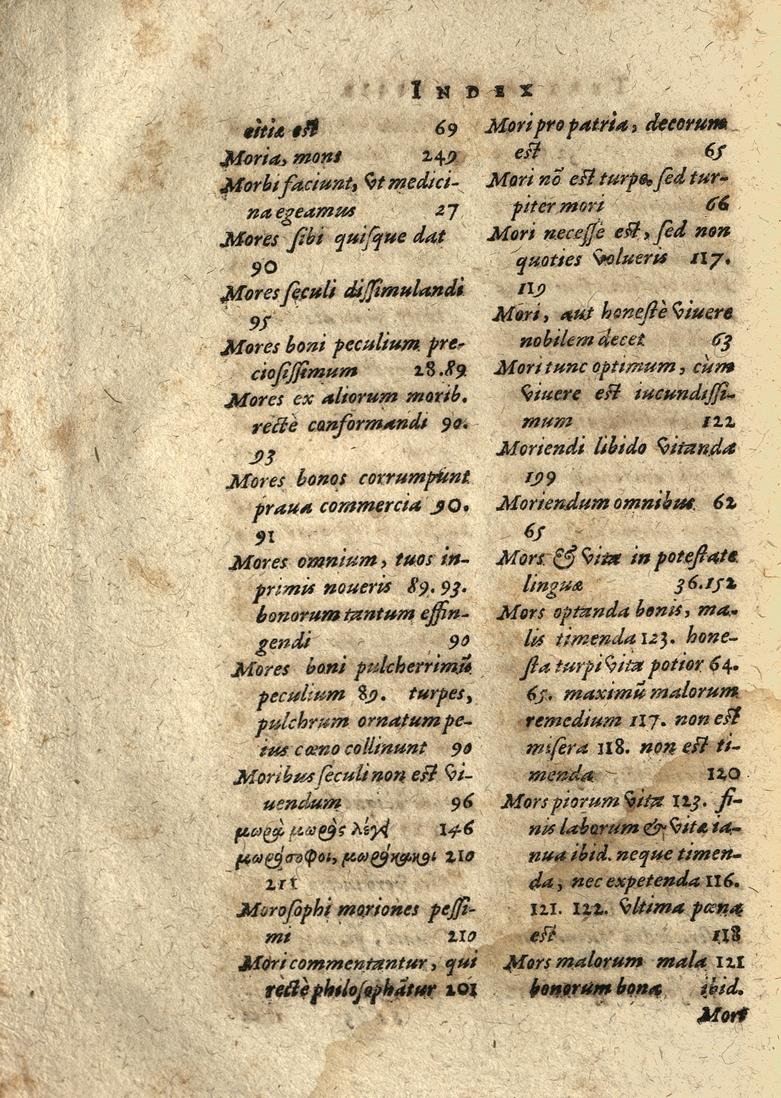 INDEX
citiæ est 69
Moria, mons 249
Morbi faciunt, vt medici-
na egeamus 27
Mores sibi quisque dat
90
Mores seculi dissimulandi
95
Mores boni peculium pre-
ciosissimum 28.89
Mores ex aliorum morib.
rectè conformandi 90.
93
Mores bonos corrumpunt
praua commercia 90.
91
Mores omnium, tuos in-
primis noueris 89.93.
bonorum tantum effin-
gendi 90
Mores boni pulcherrimū
peculium 89. turpes,
pulchrum ornatum pe-
ius cœno collinunt 90
Moribus seculi non est vi-
uendum 96
μωρὰ μωρὸς λέγει 146
μωρόσοφοι, μωρόκακοι 210
211
Morosophi moriones pessi-
mi 210
Mori commentantur, qui
rectè philosophātur 201
Mori pro patria, decorum
est 65
Mori nō est turpe, sed tur-
piter mori 66
Mori necesse est, sed non
quoties volueris 117.
119
Mori, aut honestè viuere
nobilem decet 63
Mori tunc optimum, cùm
viuere est iucundissi-
mum 122
Moriendi libido vitanda
199
Moriendum omnibus 62
65
Mors & vita in potestate
linguæ 36.152
Mors optanda bonis, ma-
lis timenda 123. hone-
sta turpi vita potior 64.
65. maximū malorum
remedium 117. non est
misera 118. non est ti-
menda 120
Mors piorum vita 123. fi-
nis laborum & vitæ ia-
nua ibid. neque timen-
da, nec expetenda 116.
121. 122. vltima pœna
est 118
Mors malorum mala 121
bonorum bona ibid.
Mors